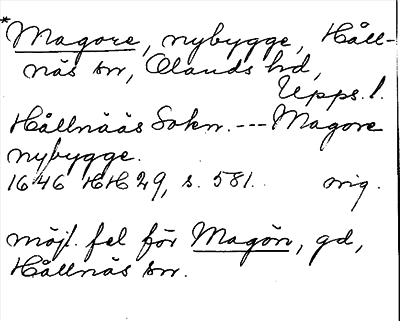 *Magore, nybygge, Håll-
näs sn, Olands hd,
Upps. l.
Hållnääs Sokn. --- Magore
nybygge.
1646 HH 29, s. 581. orig.
möjl. fel för Magön, gd,
Hållnäs sn.